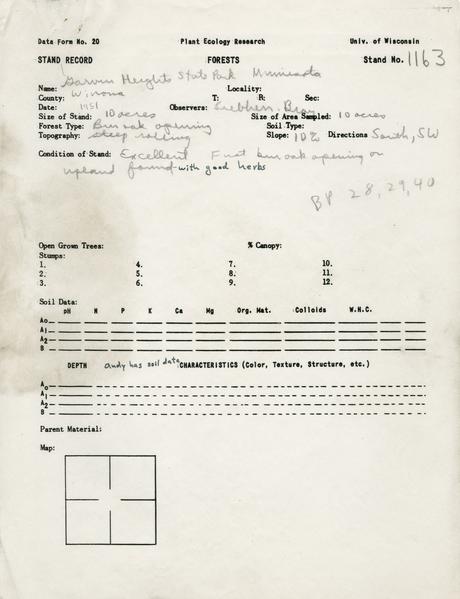 Data Form No. 20 Plant Ecology Research Univ. of Wisconsin
STAND RECORD FORESTS Stand No. 1163
Name: Garwin Heights State Park Minnesota Locality:
County: Winona T: R: Sec:
Date: 1951 Observers: Bray
Size of Stand: 10 acres Size of Area Sampled: 10 acres
Forest Type: Bur oak opening Soil Type:
Topography: steep rolling Slope: 10% Directions South, SW
Condition of Stand: Excellent First bur oak opening on
upland found - with good herbs
BP 28, 29, 40
Open Grown Trees: % Canopy:
Stumps:
1. 4. 7. 10.
2. 5. 8. 11.
3. 6. 9. 12.
Soil Data:
pH N P K Ca Mg Org. Mat. Colloids W.H.C.
A0
A1
A2
B
DEPTH Andy has soil data CHARACTERISTICS (Color, Texture, Structure, etc.)
A0
A1
A2
B
Parent Material:
Map: